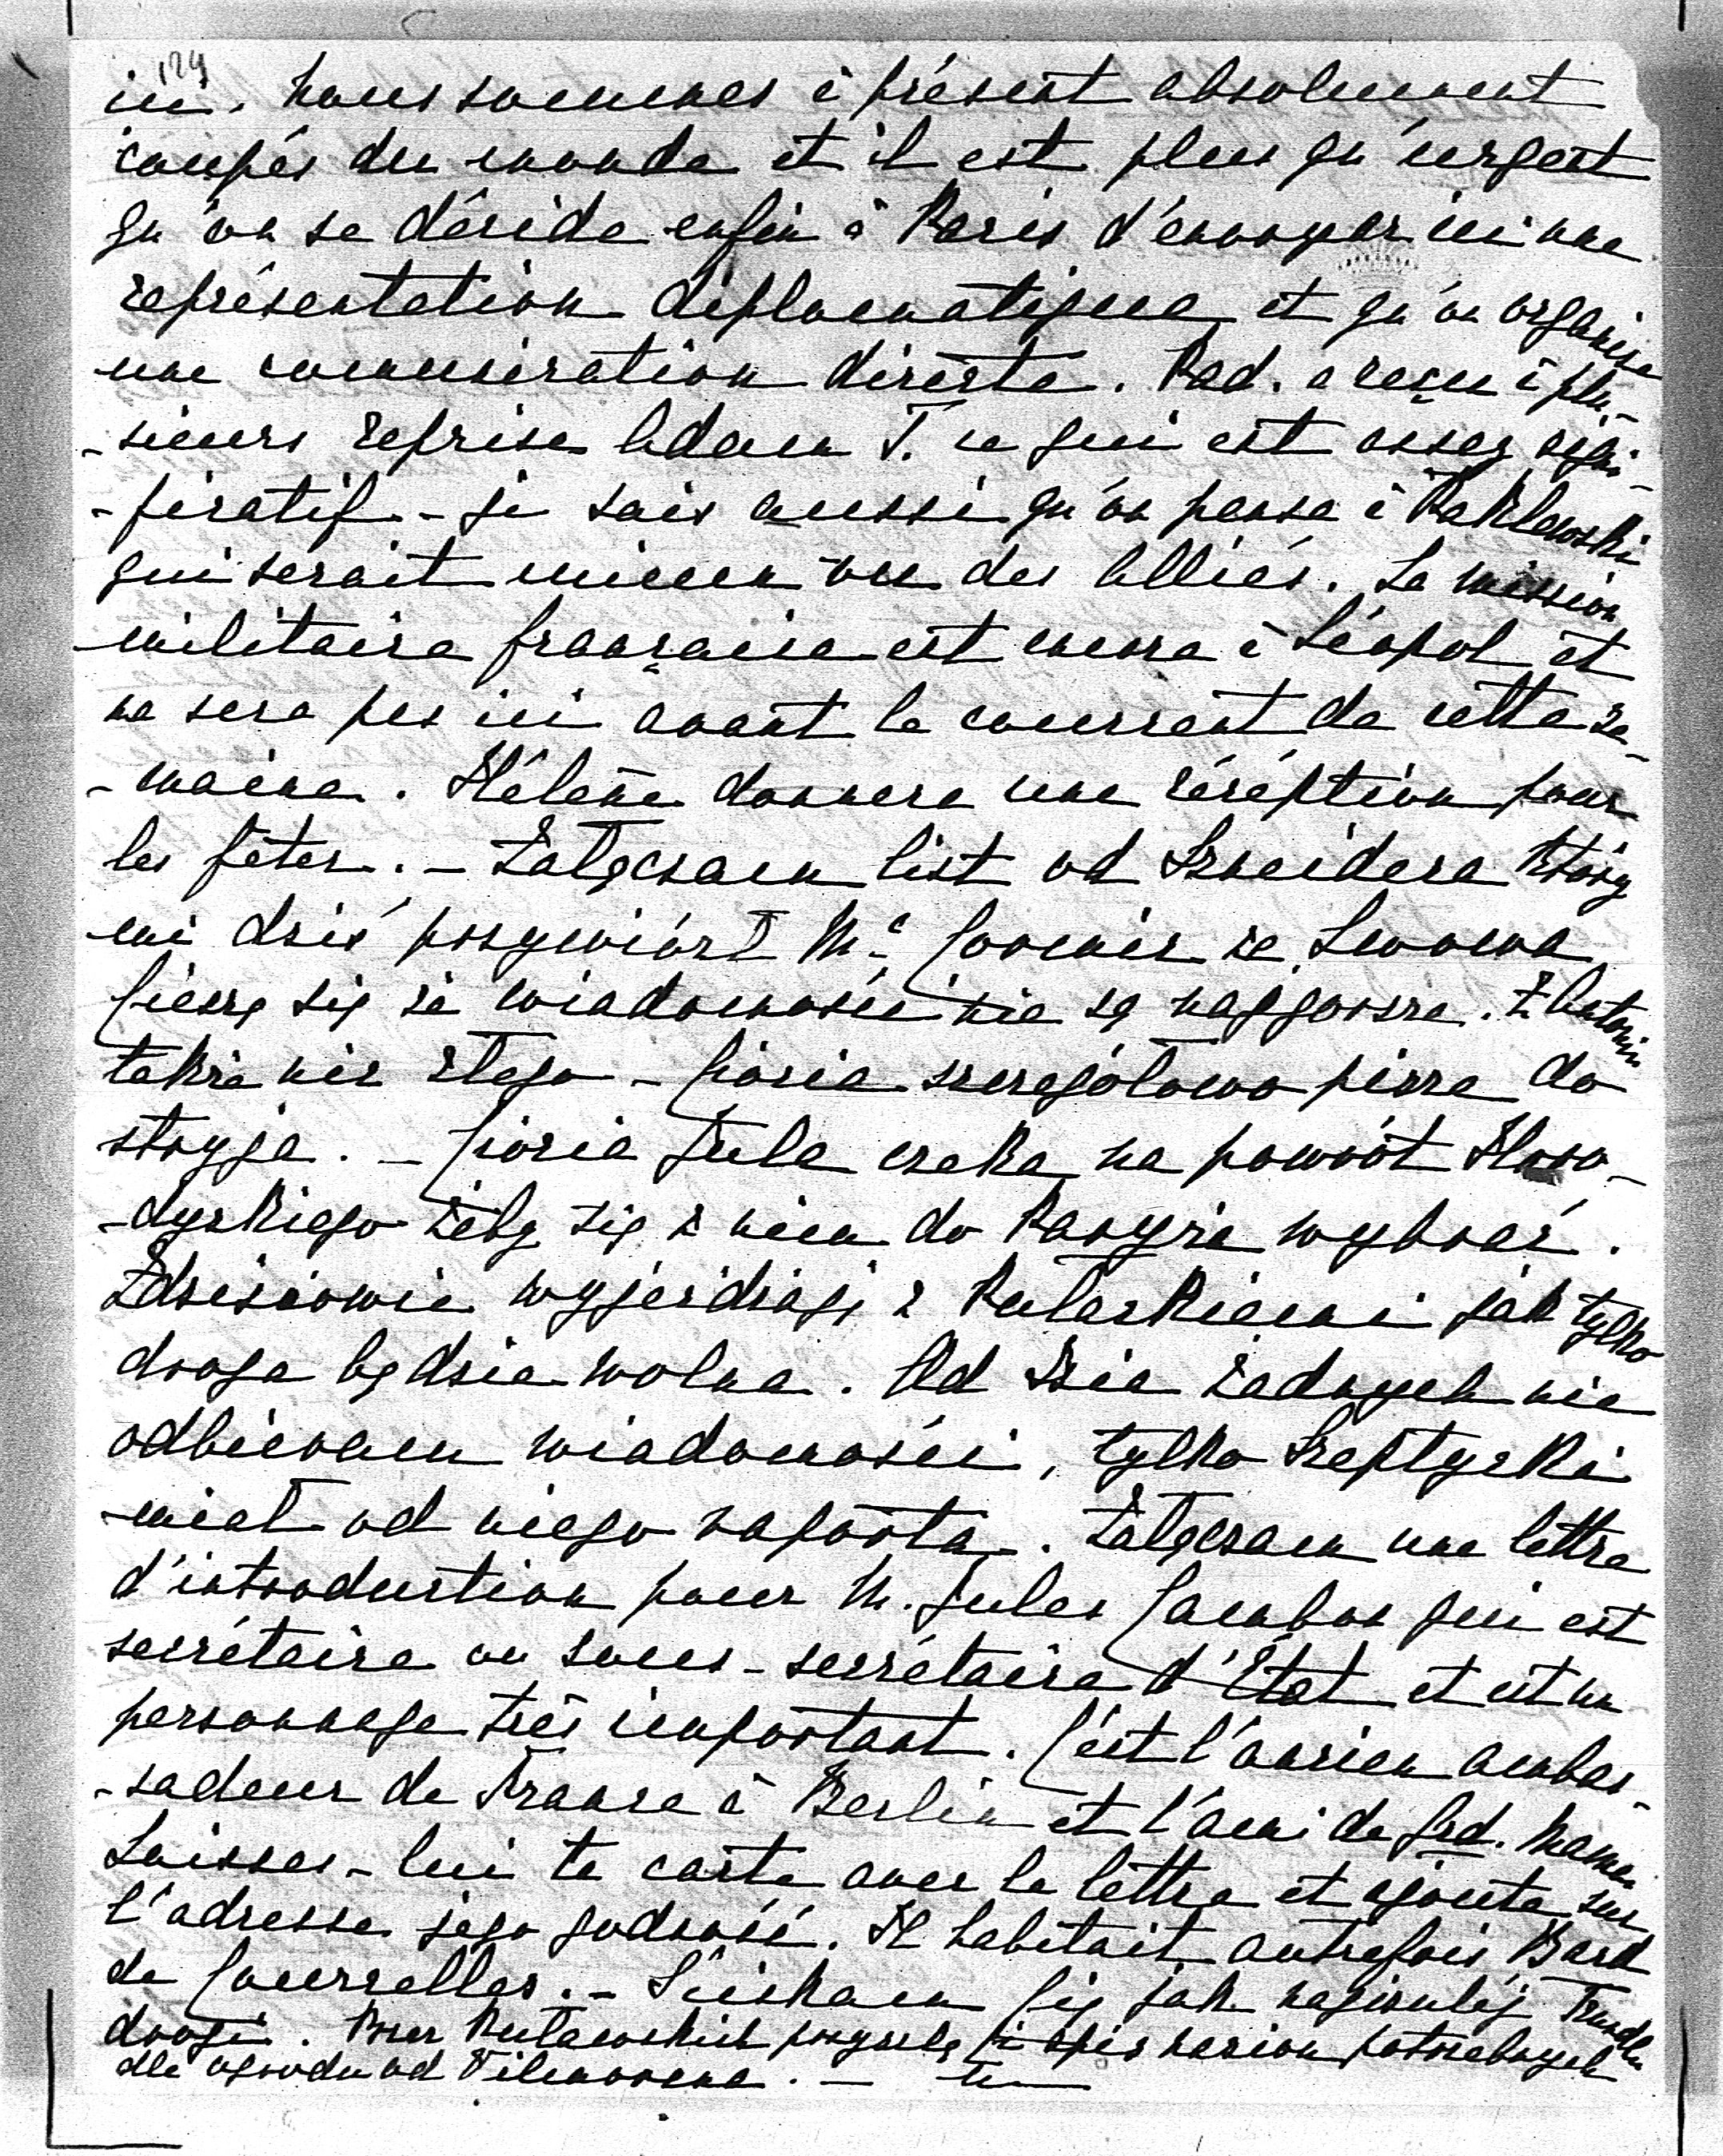 129
ici. Nous sommes à présent absolument
coupés du monde et il est plus qu'urgent
qu'on se décide enfin à Paris d'envoyer ici une
représentation diplomatique et qu'on organise
une communication directe. Pad. a reçu à plu-
-sieurs reprises Adam T. ce qui est assez signi-
-ficatif - je sais aussi qu'on pense à
qui serait mieux vu des Alliés. La mission
militaire française est encore à Léopol et
ne sera pas ici avant le courrant de cette se-
-maine. Hélène donnera une récéption pour
les fêter. - Załączam list od Szneidera który
mi dziś przywiózł Mc Cormic ze Lwowa
Cieszę się że wiadomości nie są najgorsze. Z Antonin
także nic złego - Ciocia szczegółowo pisze do
stryja. - Ciocia Jula czeka na powrót Horo-
-dyskiego żeby się z nim do Paryża wybrać.
Zdzisiowie wyjeżdżają z Pulaskiemi jak tylko
droga będzie wolna. Od Szia żadnych nie
odbieram wiadomości, tylko Szeptycki
miał od niego raporta. Załączam une lettre
d'introduction pour M. Jules Cambon qui est
secrétaire ou sous-secrétaire d'État et est un
personnage très important. C'est l'ancien ambas-
-sadeur de France à Berlin et l'ami de Grd. Maman
Laisses-lui ta carte avec la lettre et ajoute sur
l'adresse jego godność. Il habitait autrefois Bard
de Courcelles. - Ściskam Cię jak najczulej
drogi. Przez przyszlę Ci spis nasion potrzebnych
dla ogrodu od Vilmorena. -